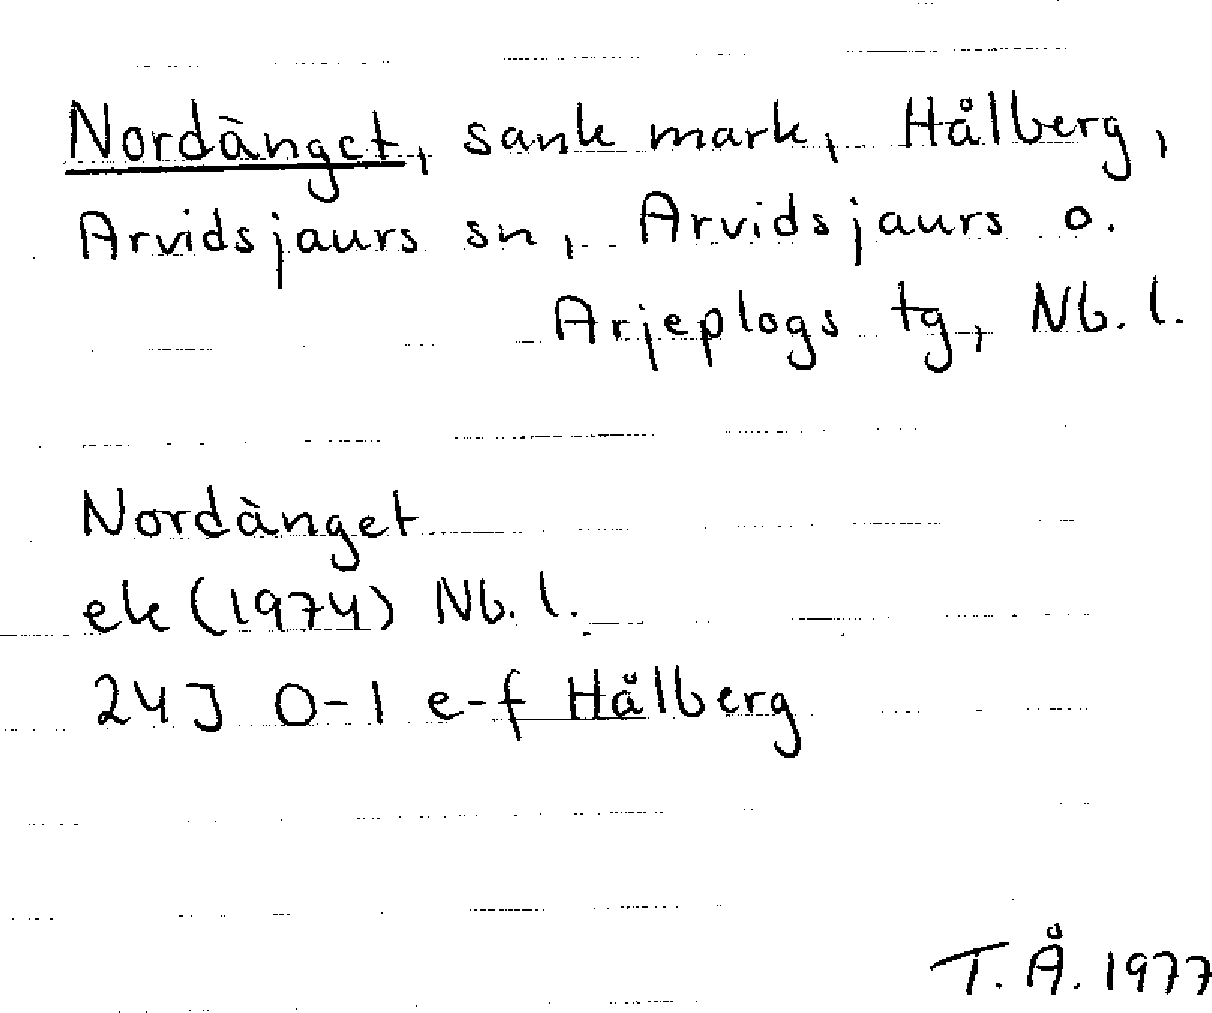 Nordänget, sank mark, Hålberg,
Arvidsjaurs sn, Arvidsjaurs o.
Arjeplogs tg, Nb. l.
Nordänget
ek (1974) Nb. l.
24 J 0-1 e-f Hålberg
T. Å. 1977